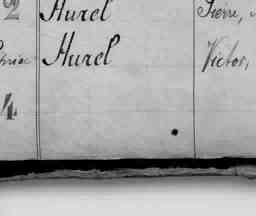 2 Hurel Pierre,
Hurel Victor,
4